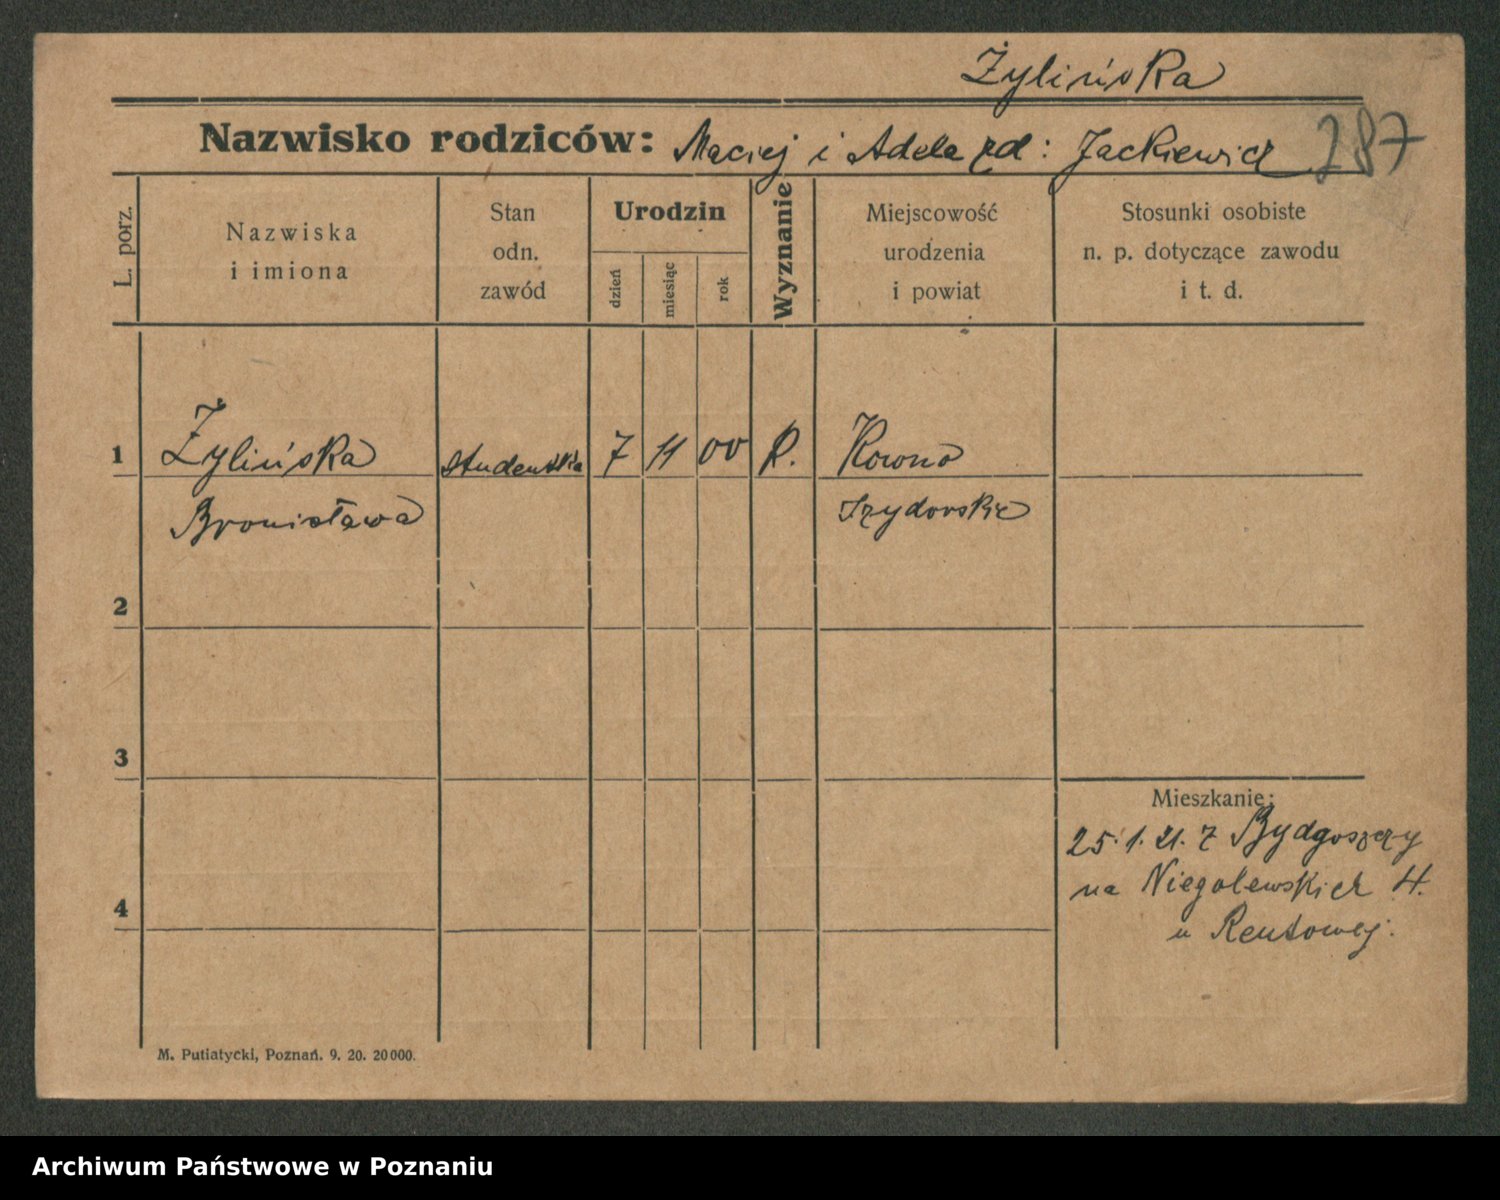 Żylińska
Nazwisko rodziców: Maciej i Adela zd: Jackiewicz 287
L. porz.
Nazwiska
i imiona
Stan
odn.
zawód
Urodzin
dzień
miesiąc
rok
Wyznanie
Miejscowość
urodzenia
i powiat
Stosunki osobiste
n. p. dotyczące zawodu
i t. d.
1 Żylińska studentka 7 11 00 R. Kowno
Bronisława
2
3
Mieszkanie:
25.1.21. z Bydgoszczy
na Niegolewskich
4
u Rentowej.
M. Putiatycki, Poznań. 9. 20. 20000.
Archiwum Państwowe w Poznaniu